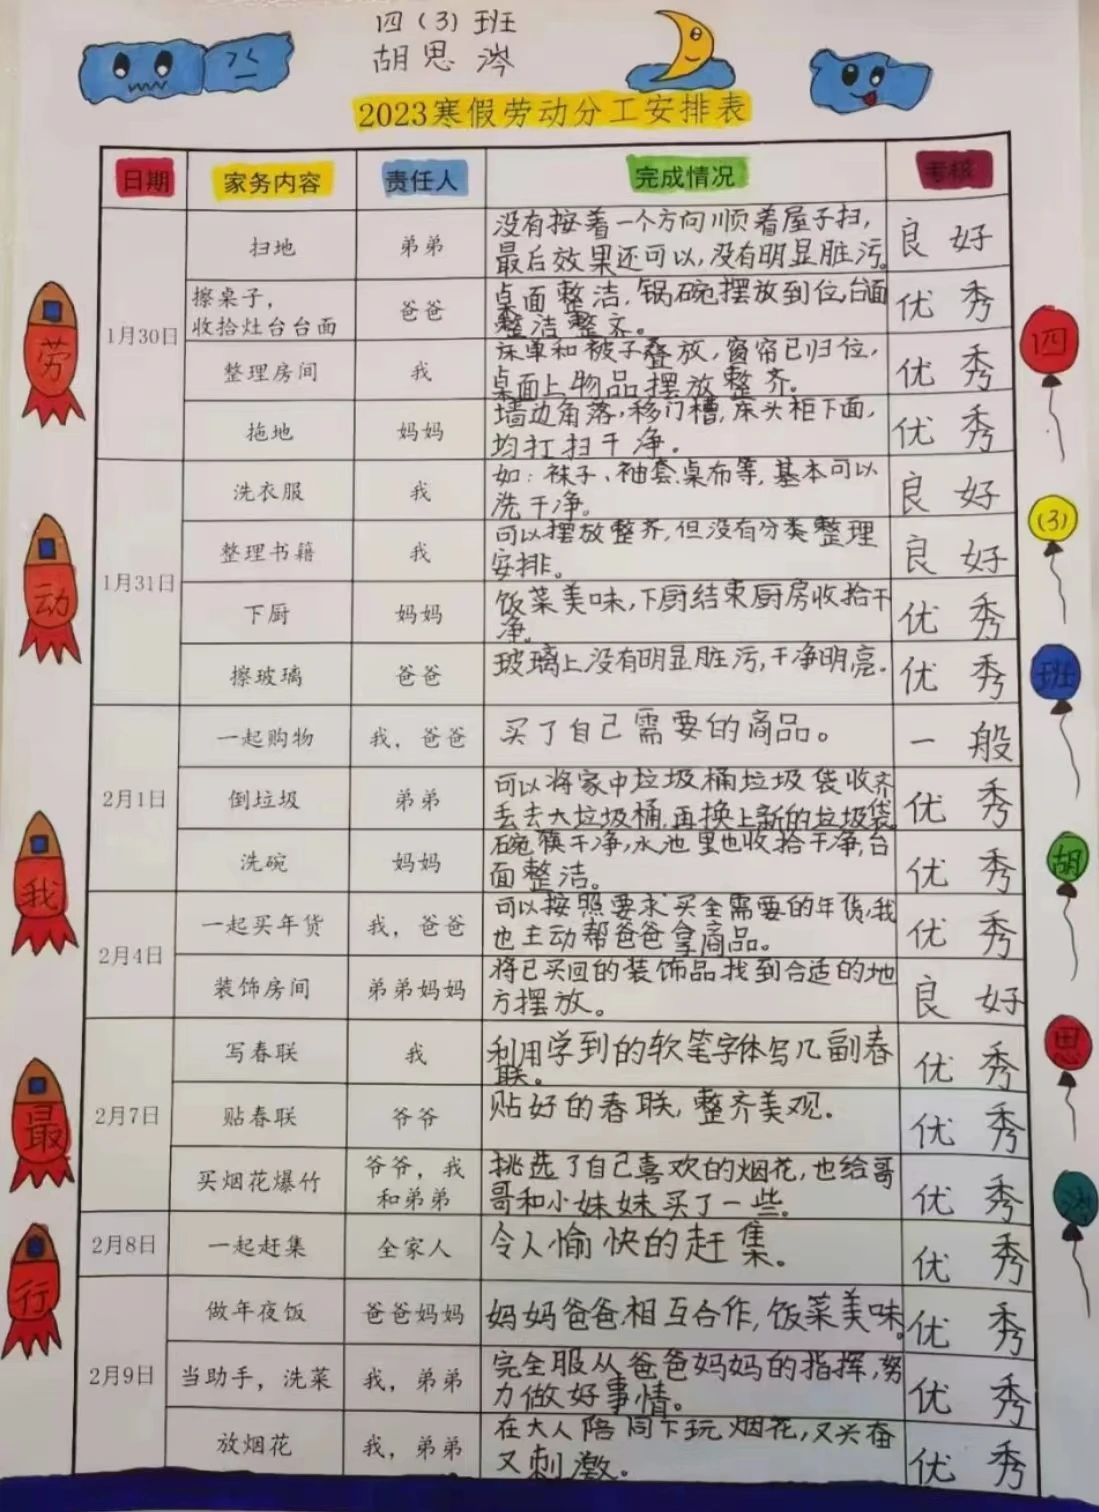 四（3）班
胡思涔
2023寒假劳动分工安排表
日期 家务内容 责任人 完成情况 考核
1月30日
扫地 弟弟 没有按着一个方向顺着屋子扫，
最后效果还可以，没有明显脏污。 良好
擦桌子，
收拾灶台台面 爸爸 桌面整洁，锅碗摆放到位，台面
整洁整齐。 优秀
整理房间 我 床单和被子叠放，窗帘已归位，
桌面上物品摆放整齐。 优秀
拖地 妈妈 墙边角落，移门槽，床头柜下面，
均打扫干净。 优秀
1月31日
洗衣服 我 如：袜子、袖套、桌布等，基本可以
洗干净。 良好
整理书籍 我 可以摆放整齐，但没有分类整理
安排。 良好
下厨 妈妈 饭菜美味，下厨结束厨房收拾干
净。 优秀
擦玻璃 爸爸 玻璃上没有明显脏污，干净明亮。 优秀
2月1日
一起购物 我，爸爸 买了自己需要的商品。 一般
倒垃圾 弟弟 可以将家中垃圾桶垃圾袋收齐
丢去大垃圾桶，再换上新的垃圾袋。 优秀
洗碗 妈妈 碗筷干净，水池里也收拾干净，台
面整洁。 优秀
2月4日
一起买年货 我，爸爸 可以按照要求买全需要的年货，我
也主动帮爸爸拿商品。 优秀
装饰房间 弟弟妈妈 将已买回的装饰品找到合适的地
方摆放。 良好
2月7日
写春联 我 利用学到的软笔字体写几副春
联。 优秀
贴春联 爷爷 贴好的春联，整齐美观。 优秀
买烟花爆竹 爷爷，我
和弟弟 挑选了自己喜欢的烟花，也给哥
哥和小妹妹买了一些。 优秀
2月8日
一起赶集 全家人 令人愉快的赶集。 优秀
2月9日
做年夜饭 爸爸妈妈 妈妈爸爸相互合作，饭菜美味。 优秀
当助手，洗菜 我，弟弟 完全服从爸爸妈妈的指挥，努
力做好事情。 优秀
放烟花 我，弟弟 在大人陪同下玩烟花，又兴奋
又刺激。 优秀
劳
动
我
最
行
四
（3）
班
胡
思
涔